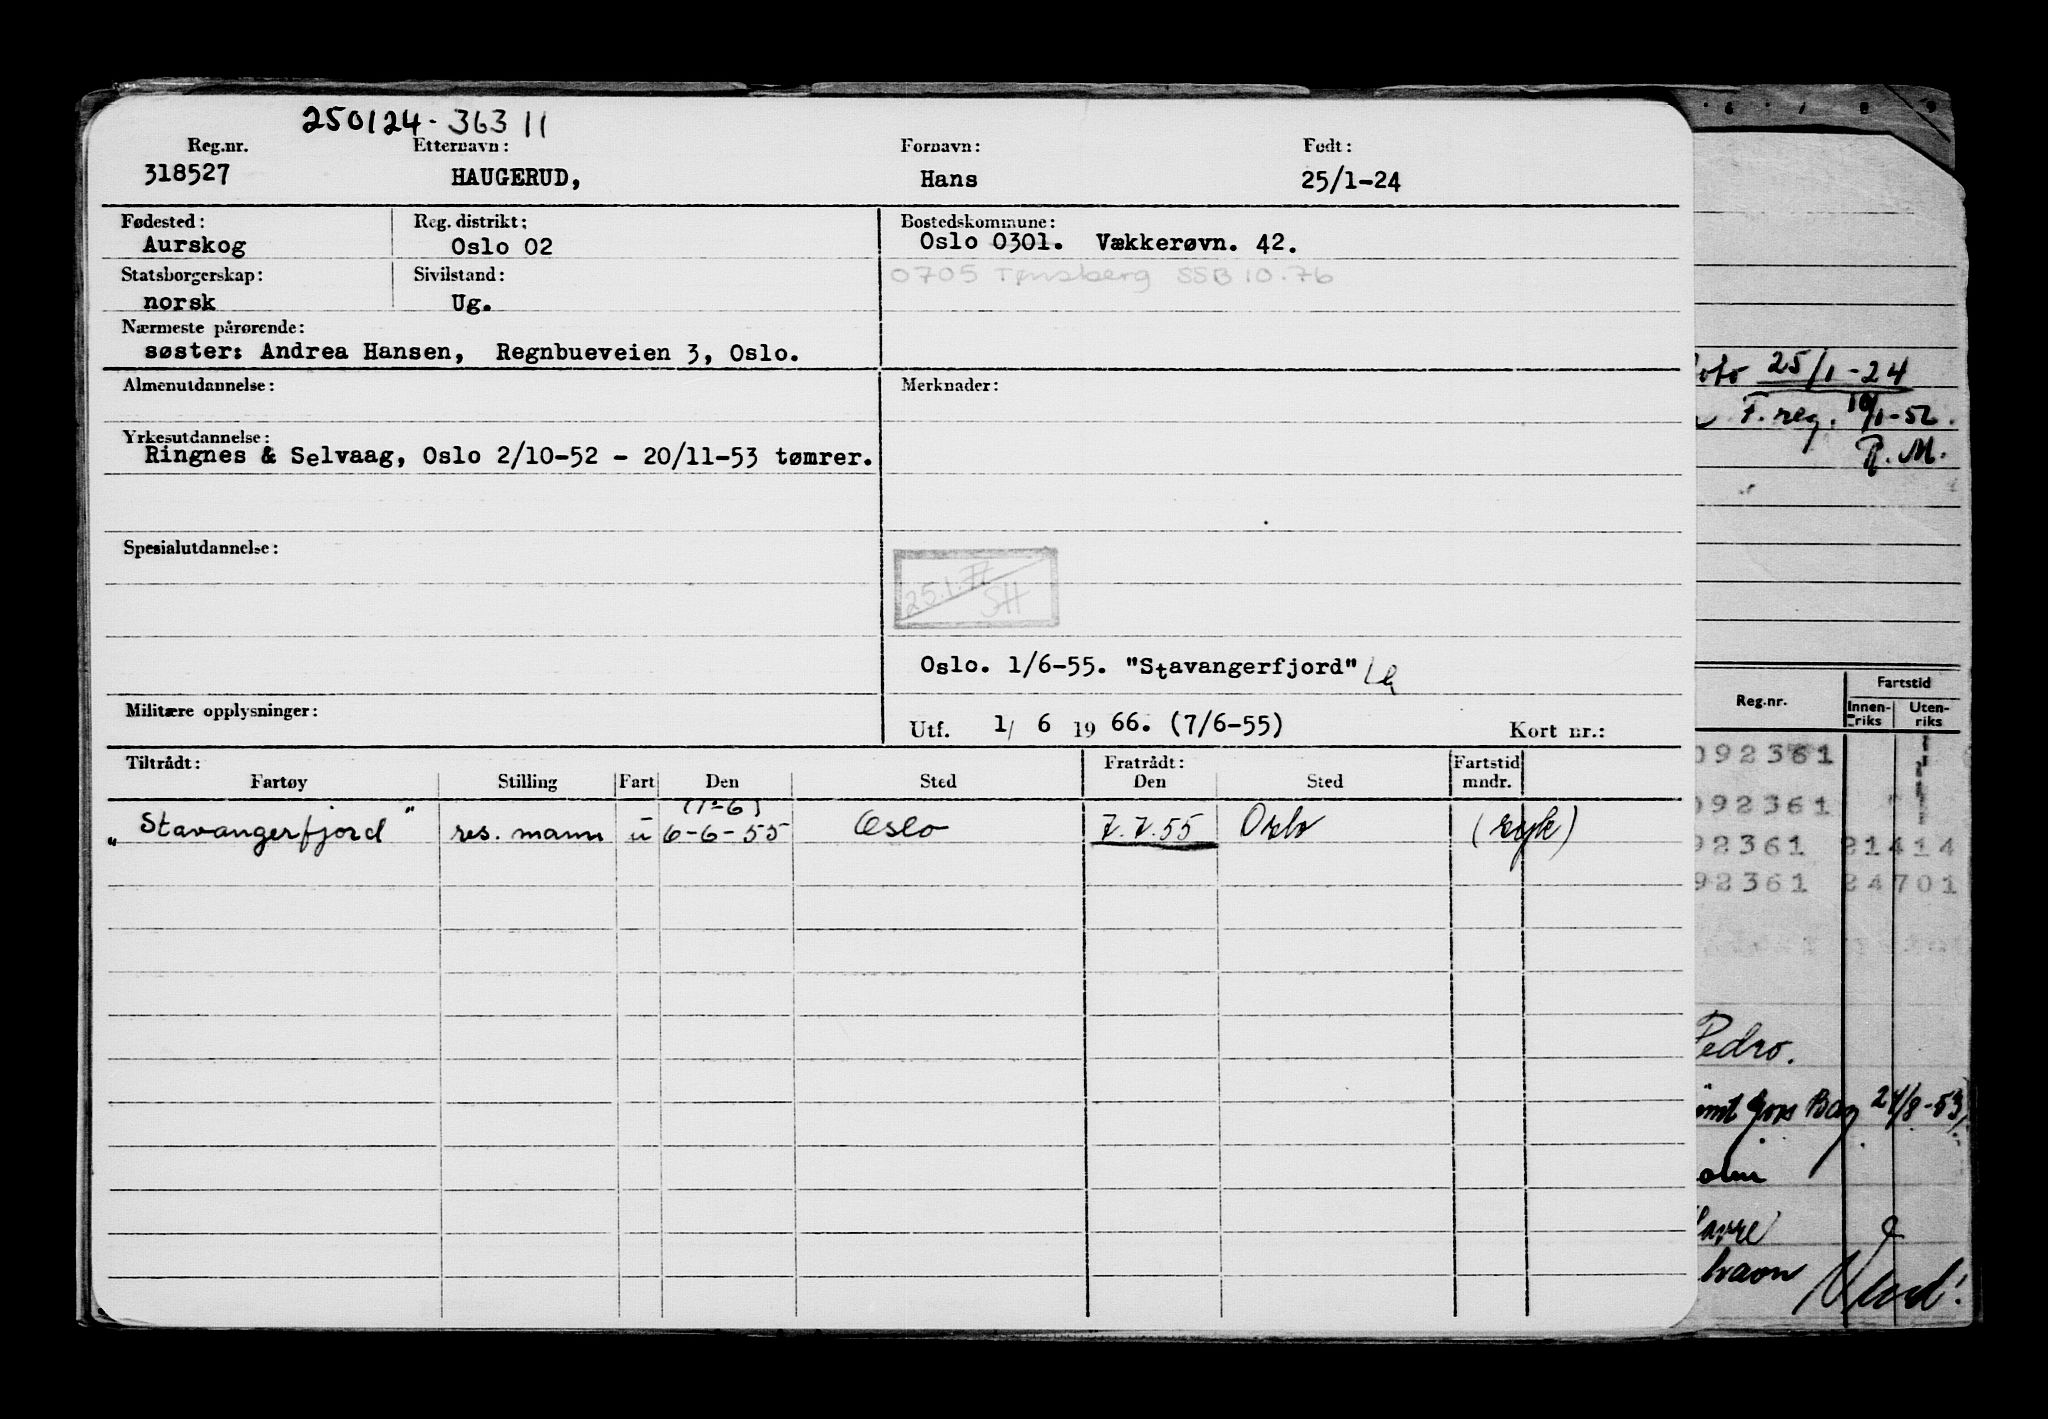 250124-36311
Reg.nr. Etternavn: Fornavn: Født:
318527 HAUGERUD, Hans 25/1-24
Fødested: Reg. distrikt: Bostedskommune:
Aurskog Oslo 02 Oslo 0301. Vækkerøvn. 42.
Statsborgerskap: Sivilstand: 0705 Tønsberg SSB 10.76
norsk Ug.
Nærmeste pårørende:
søster: Andrea Hansen, Regnbueveien 3, Oslo.
Almenutdannelse: Merknader:
Yrkesutdannelse:
Ringnes & Selvaag, Oslo 2/10-52 - 20/11-53 tømrer.
Spesialutdannelse:
25.1.77
SH
Oslo. 1/6-55. "Stavangerfjord"
Militære opplysninger:
Utf. 1/ 6 19 66. (7/6-55) Kort nr.:
Tiltrådt: Fratrådt: Fartstid
Fartøy Stilling Fart Den Sted Den Sted mndr.
(7-6)
"Stavangerfjord" res. mann u 6-6-55 Oslo 7.7.55 Oslo (syk)
25/1-24
F. reg. 10/1-52.
R. M.
Reg.nr. Fartstid
Innen-riks Uten-riks
092361
092361
92361 21414
92361 24701
Pedro.
24/8-53